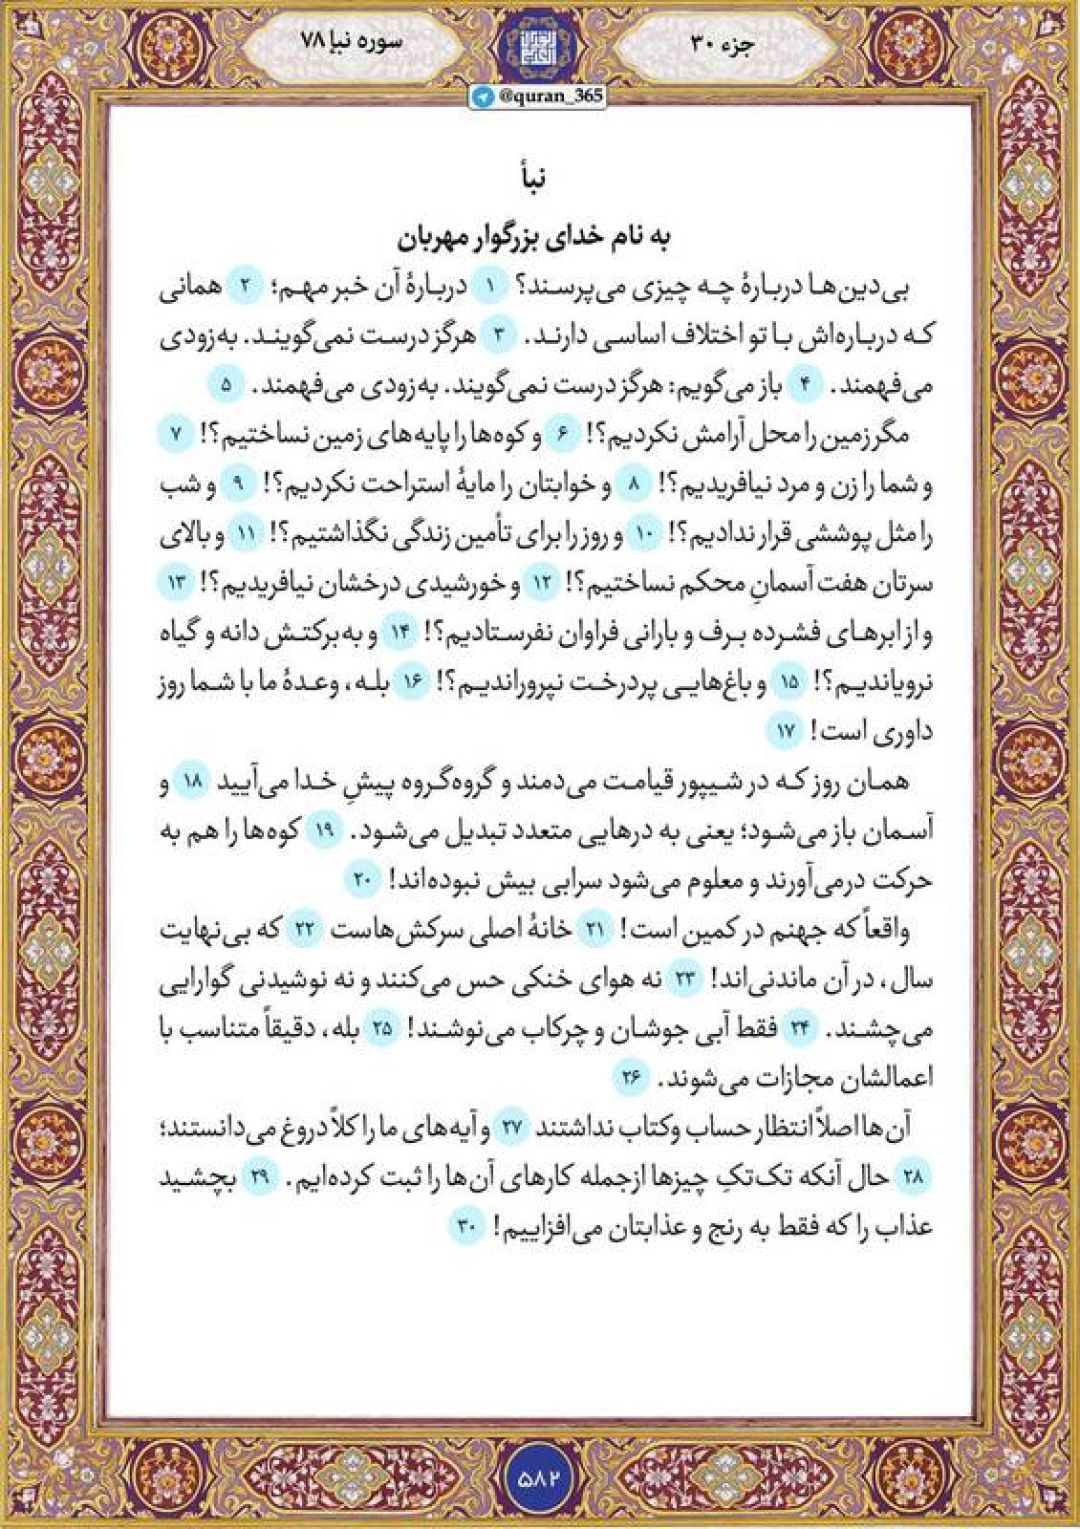 جزء ۳۰
سوره نبإ ۷۸
@quran_365
نبأ
به نام خدای بزرگوار مهربان
بی‌دین‌ها دربارهٔ چه چیزی می‌پرسند؟ ۱ دربارهٔ آن خبر مهم؛ ۲ همانی
که درباره‌اش با تو اختلاف اساسی دارند. ۳ هرگز درست نمی‌گویند. به‌زودی
می‌فهمند. ۴ باز می‌گویم: هرگز درست نمی‌گویند. به‌زودی می‌فهمند. ۵
مگر زمین را محل آرامش نکردیم؟! ۶ و کوه‌ها را پایه‌های زمین نساختیم؟! ۷
و شما را زن و مرد نیافریدیم؟! ۸ و خوابتان را مایهٔ استراحت نکردیم؟! ۹ و شب
را مثل پوششی قرار ندادیم؟! ۱۰ و روز را برای تأمین زندگی نگذاشتیم؟! ۱۱ و بالای
سرتان هفت آسمانِ محکم نساختیم؟! ۱۲ و خورشیدی درخشان نیافریدیم؟! ۱۳
و از ابرهای فشرده برف و بارانی فراوان نفرستادیم؟! ۱۴ و به‌برکتش دانه و گیاه
نرویاندیم؟! ۱۵ و باغ‌هایی پردرخت نپروراندیم؟! ۱۶ بله، وعدهٔ ما با شما روز
داوری است! ۱۷
همان روز که در شیپور قیامت می‌دمند و گروه‌گروه پیشِ خدا می‌آیید ۱۸ و
آسمان باز می‌شود؛ یعنی به درهایی متعدد تبدیل می‌شود. ۱۹ کوه‌ها را هم به
حرکت درمی‌آورند و معلوم می‌شود سرابی بیش نبوده‌اند! ۲۰
واقعاً که جهنم در کمین است! ۲۱ خانهٔ اصلی سرکش‌هاست ۲۲ که بی‌نهایت
سال، در آن ماندنی‌اند! ۲۳ نه هوای خنکی حس می‌کنند و نه نوشیدنی گوارایی
می‌چشند. ۲۴ فقط آبی جوشان و چرکاب می‌نوشند! ۲۵ بله، دقیقاً متناسب با
اعمالشان مجازات می‌شوند. ۲۶
آن‌ها اصلاً انتظار حساب وکتاب نداشتند ۲۷ و آیه‌های ما را کلاً دروغ می‌دانستند؛
۲۸ حال آنکه تک‌تکِ چیزها ازجمله کارهای آن‌ها را ثبت کرده‌ایم. ۲۹ بچشید
عذاب را که فقط به رنج و عذابتان می‌افزاییم! ۳۰
۵۸۲